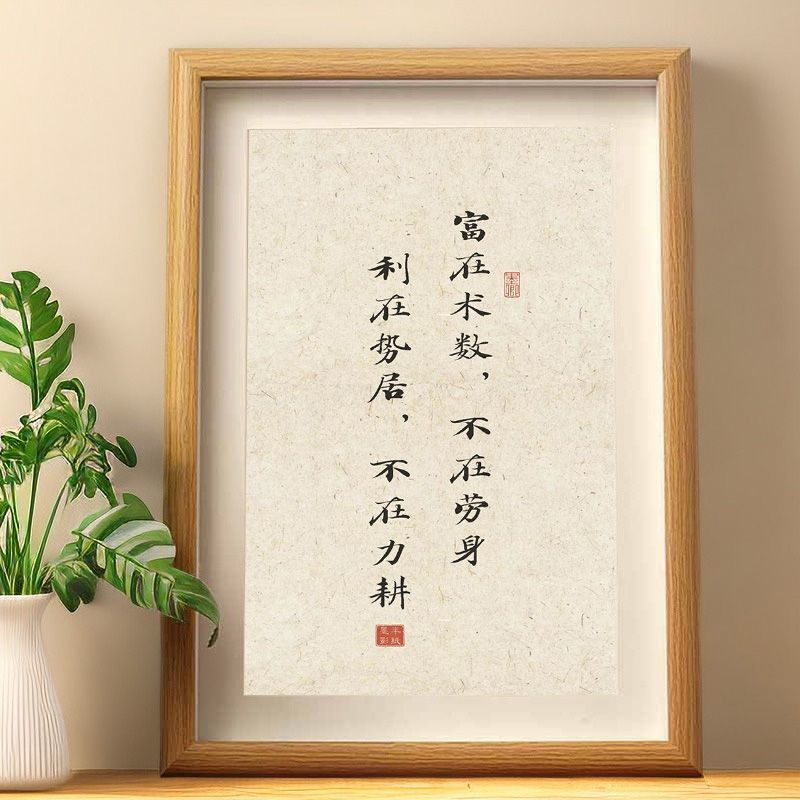 富在术数，不在劳身
利在势居，不在力耕
半纸
墨影